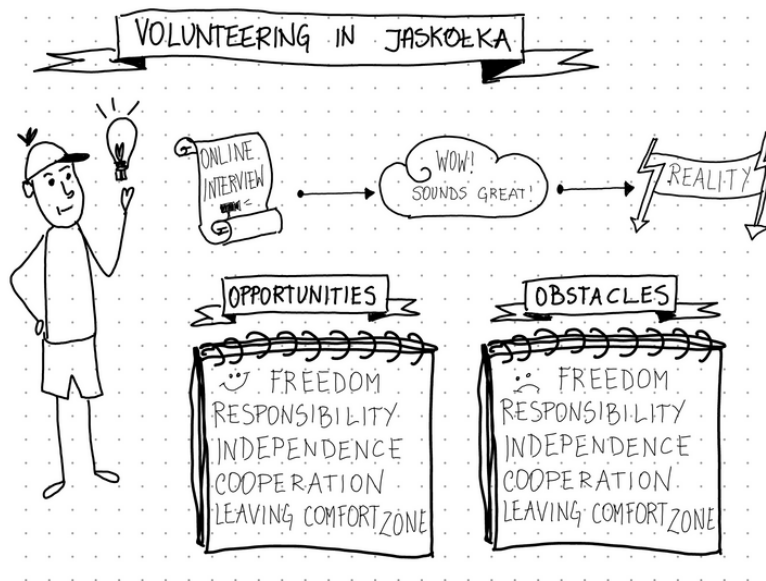 VOLUNTEERING IN JASKÓŁKA
ONLINE
INTERVIEW
WOW!
SOUNDS GREAT!
REALITY
OPPORTUNITIES
FREEDOM
RESPONSIBILITY
INDEPENDENCE
COOPERATION
LEAVING COMFORT ZONE
OBSTACLES
FREEDOM
RESPONSIBILITY
INDEPENDENCE
COOPERATION
LEAVING COMFORT ZONE